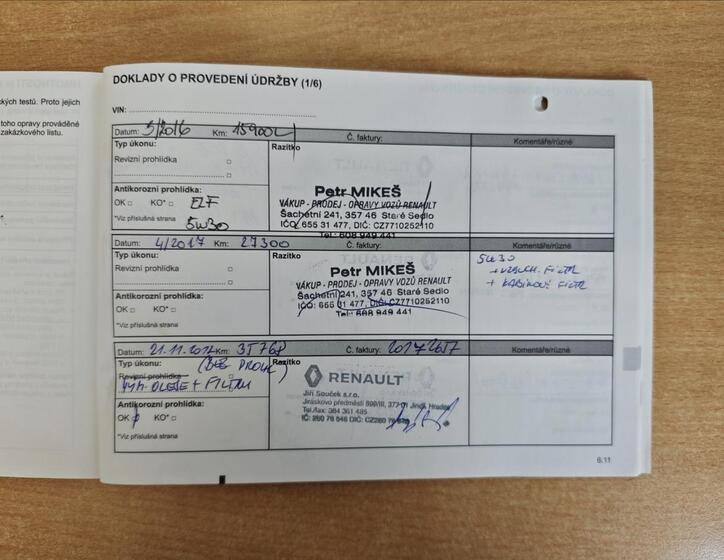 kých testů. Proto jejich
toho opravy prováděné
zakázkového listu.
DOKLADY O PROVEDENÍ ÚDRŽBY (1/6)
VIN:
Datum: 5/2016 Km: 15900 Č. faktury: Komentáře/různé
Typ úkonu: Razítko
Revizní prohlídka
Antikorozní prohlídka:
OK KO* ELF
*Viz příslušná strana 5W30
Petr MIKEŠ
VÁKUP - PRODEJ - OPRAVY VOZŮ RENAULT
Šachetní 241, 357 46 Staré Sedlo
IČO: 655 31 477, DIČ: CZ7710252110
Tel.: 608 949 441
Datum: 4/2017 Km: 27300 Č. faktury: Komentáře/různé
Typ úkonu: Razítko
Revizní prohlídka
Antikorozní prohlídka:
OK KO*
*Viz příslušná strana
Petr MIKEŠ
VÁKUP - PRODEJ - OPRAVY VOZŮ RENAULT
Šachetní 241, 357 46 Staré Sedlo
IČO: 655 31 477, DIČ: CZ7710252110
Tel.: 608 949 441
5W30
+ VZDUCH. FILTR
+ KABINOVÝ FILTR
Datum: 21.11.2017 Km: 35768 Č. faktury: Komentáře/různé
Typ úkonu: (BEZ PROHL.) Razítko
Revizní prohlídka
VÝM. OLEJE + FILTRU
Antikorozní prohlídka:
OK KO*
*Viz příslušná strana
RENAULT
Jiří Souček s.r.o.
Jiráskovo předměstí 899/III, 377 01 Jindř. Hradec
Tel./fax: 384 361 485
6.11